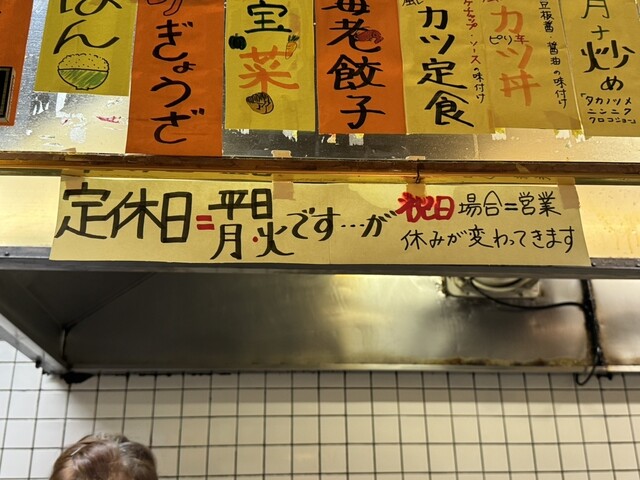 はん
ぎょうざ
宝菜
海老餃子
風
カツ定食
ケチャップ・ソース・味付け
カツ丼
ピリ辛
豆板醤・醤油の味付け
月 炒め
「タカノツメ
ニンニク
クロコショー」
定休日=平日月・火です…が祝日場合=営業
休みが変わってきます